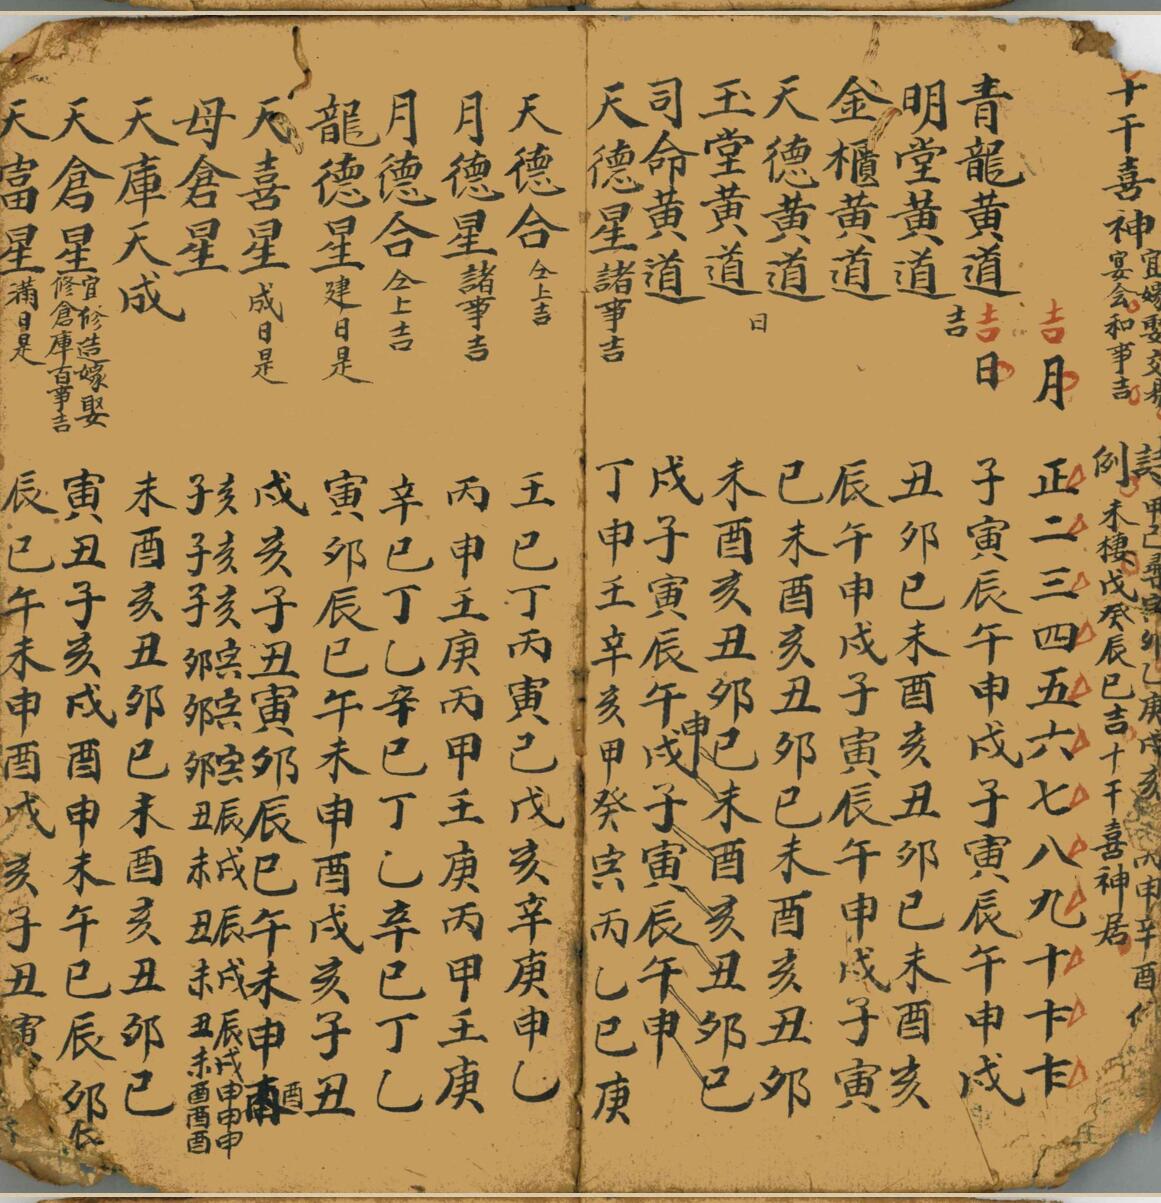 十干喜神 宜嫁娶交易 宴会和事吉
詩例 甲己尋寅卯乙庚戌亥 丙申辛酉 未棲戊癸辰巳吉十干喜神居
吉月 正二三四五六七八九十十十
青龍黃道 吉日 子寅辰午申戌子寅辰午申戌
明堂黃道 吉 丑卯巳未酉亥丑卯巳未酉亥
金櫃黃道 辰午申戌子寅辰午申戌子寅
天德黃道 巳未酉亥丑卯巳未酉亥丑卯
玉堂黃道 日 未酉亥丑卯巳未酉亥丑卯巳
司命黃道 戌子寅辰午申戌子寅辰午申
天德星 諸事吉 丁申壬辛亥甲癸寅丙乙巳庚
天德合 仝上吉 壬巳丁丙寅己戊亥辛庚申乙
月德星 諸事吉 丙申壬庚丙甲壬庚丙甲壬庚
月德合 仝上吉 辛巳丁乙辛巳丁乙辛巳丁乙
龍德星 建日是 寅卯辰巳午未申酉戌亥子丑
天喜星 成日是 戌亥子丑寅卯辰巳午未申酉
母倉星 亥亥亥寅寅寅辰戌辰戌辰戌申申申 子子子卯卯卯丑未丑未丑未酉酉酉
天庫天成 未酉亥丑卯巳未酉亥丑卯巳
天倉星 宜修造嫁娶 修倉庫百事吉 寅丑子亥戌酉申未午巳辰卯
天富星 滿日是 辰巳午未申酉戌亥子丑寅